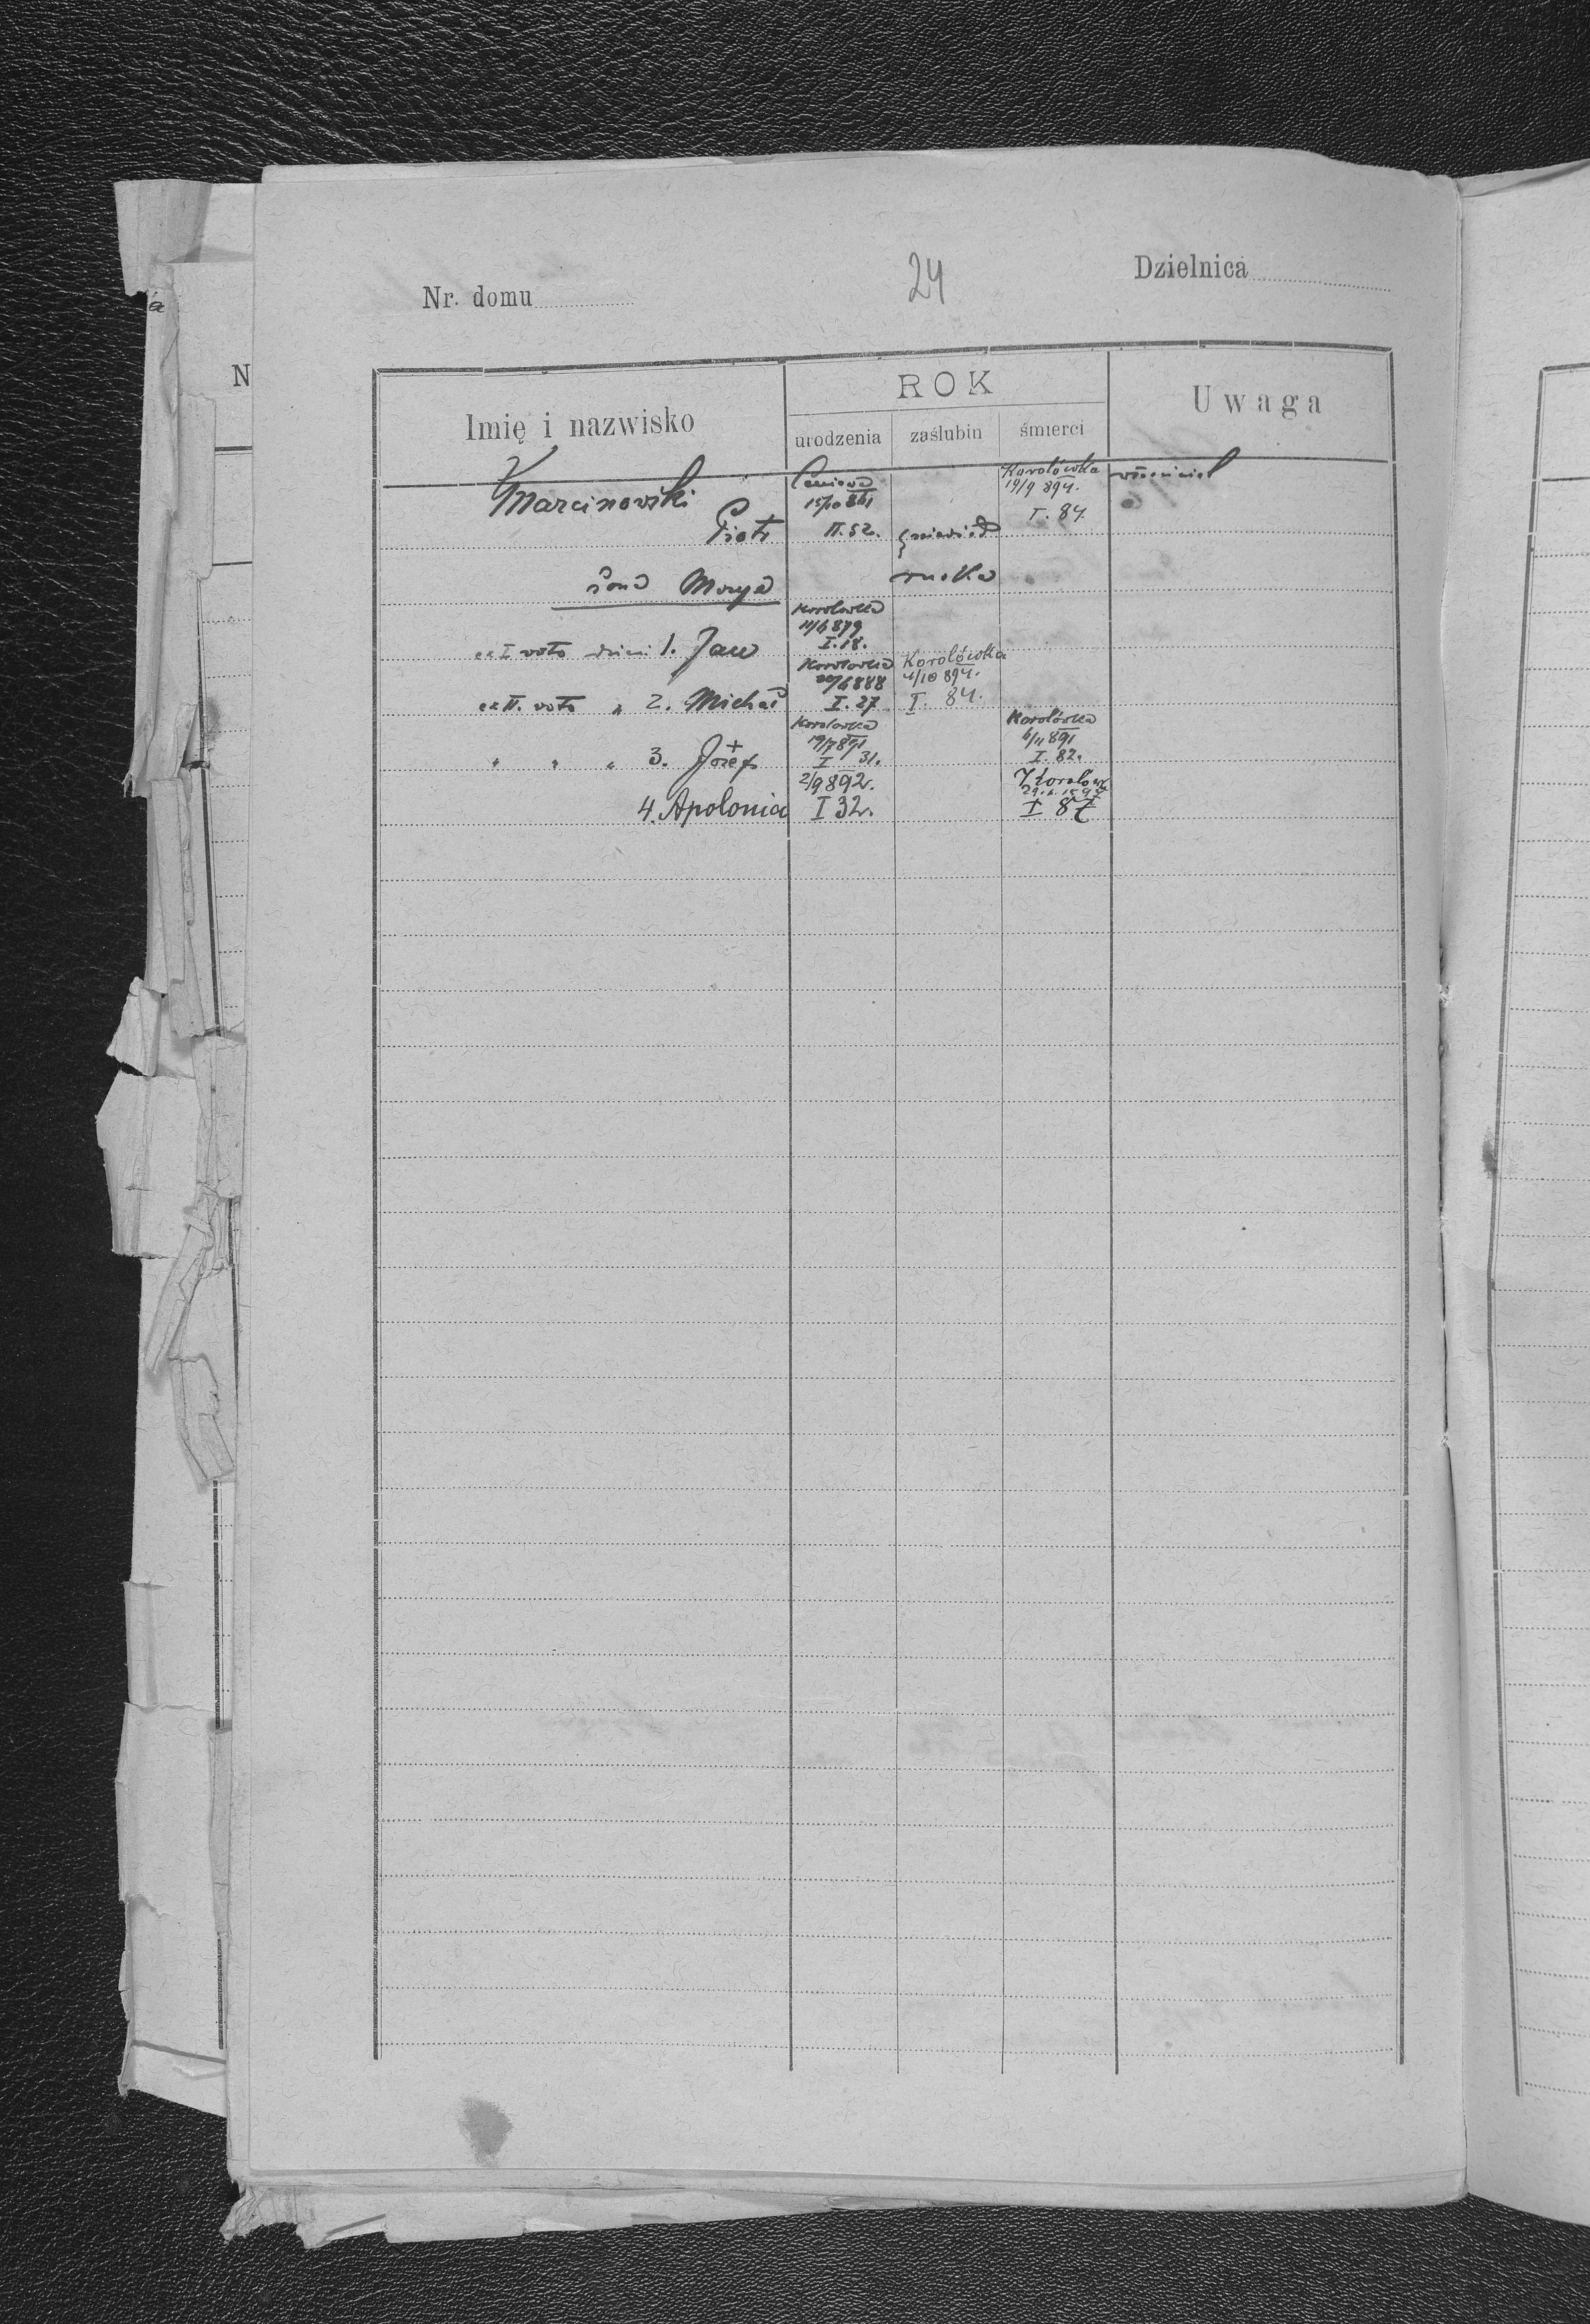 a
N
Nr. domu
24
Dzielnica
Imię i nazwisko
ROK
urodzenia zaślubin śmierci
Uwaga
Marcinowski
15/10 861
Korolówka
19/9 894.
Piotr
II. 52.
I. 84.
żona Marya
Korolówka
11/6 879
ex I voto dzieci 1. Jan
I. 18.
Korolówka
Korolówka
6888
4/10 894.
ex II. voto " 2. Michał
I. 27
I. 84.
Korolówka
19/7 891
Korolówka
6/11 891
" " " 3. Józef +
I 31.
I. 82.
2/9 892.
4. Apolonia
I 32.
I 87